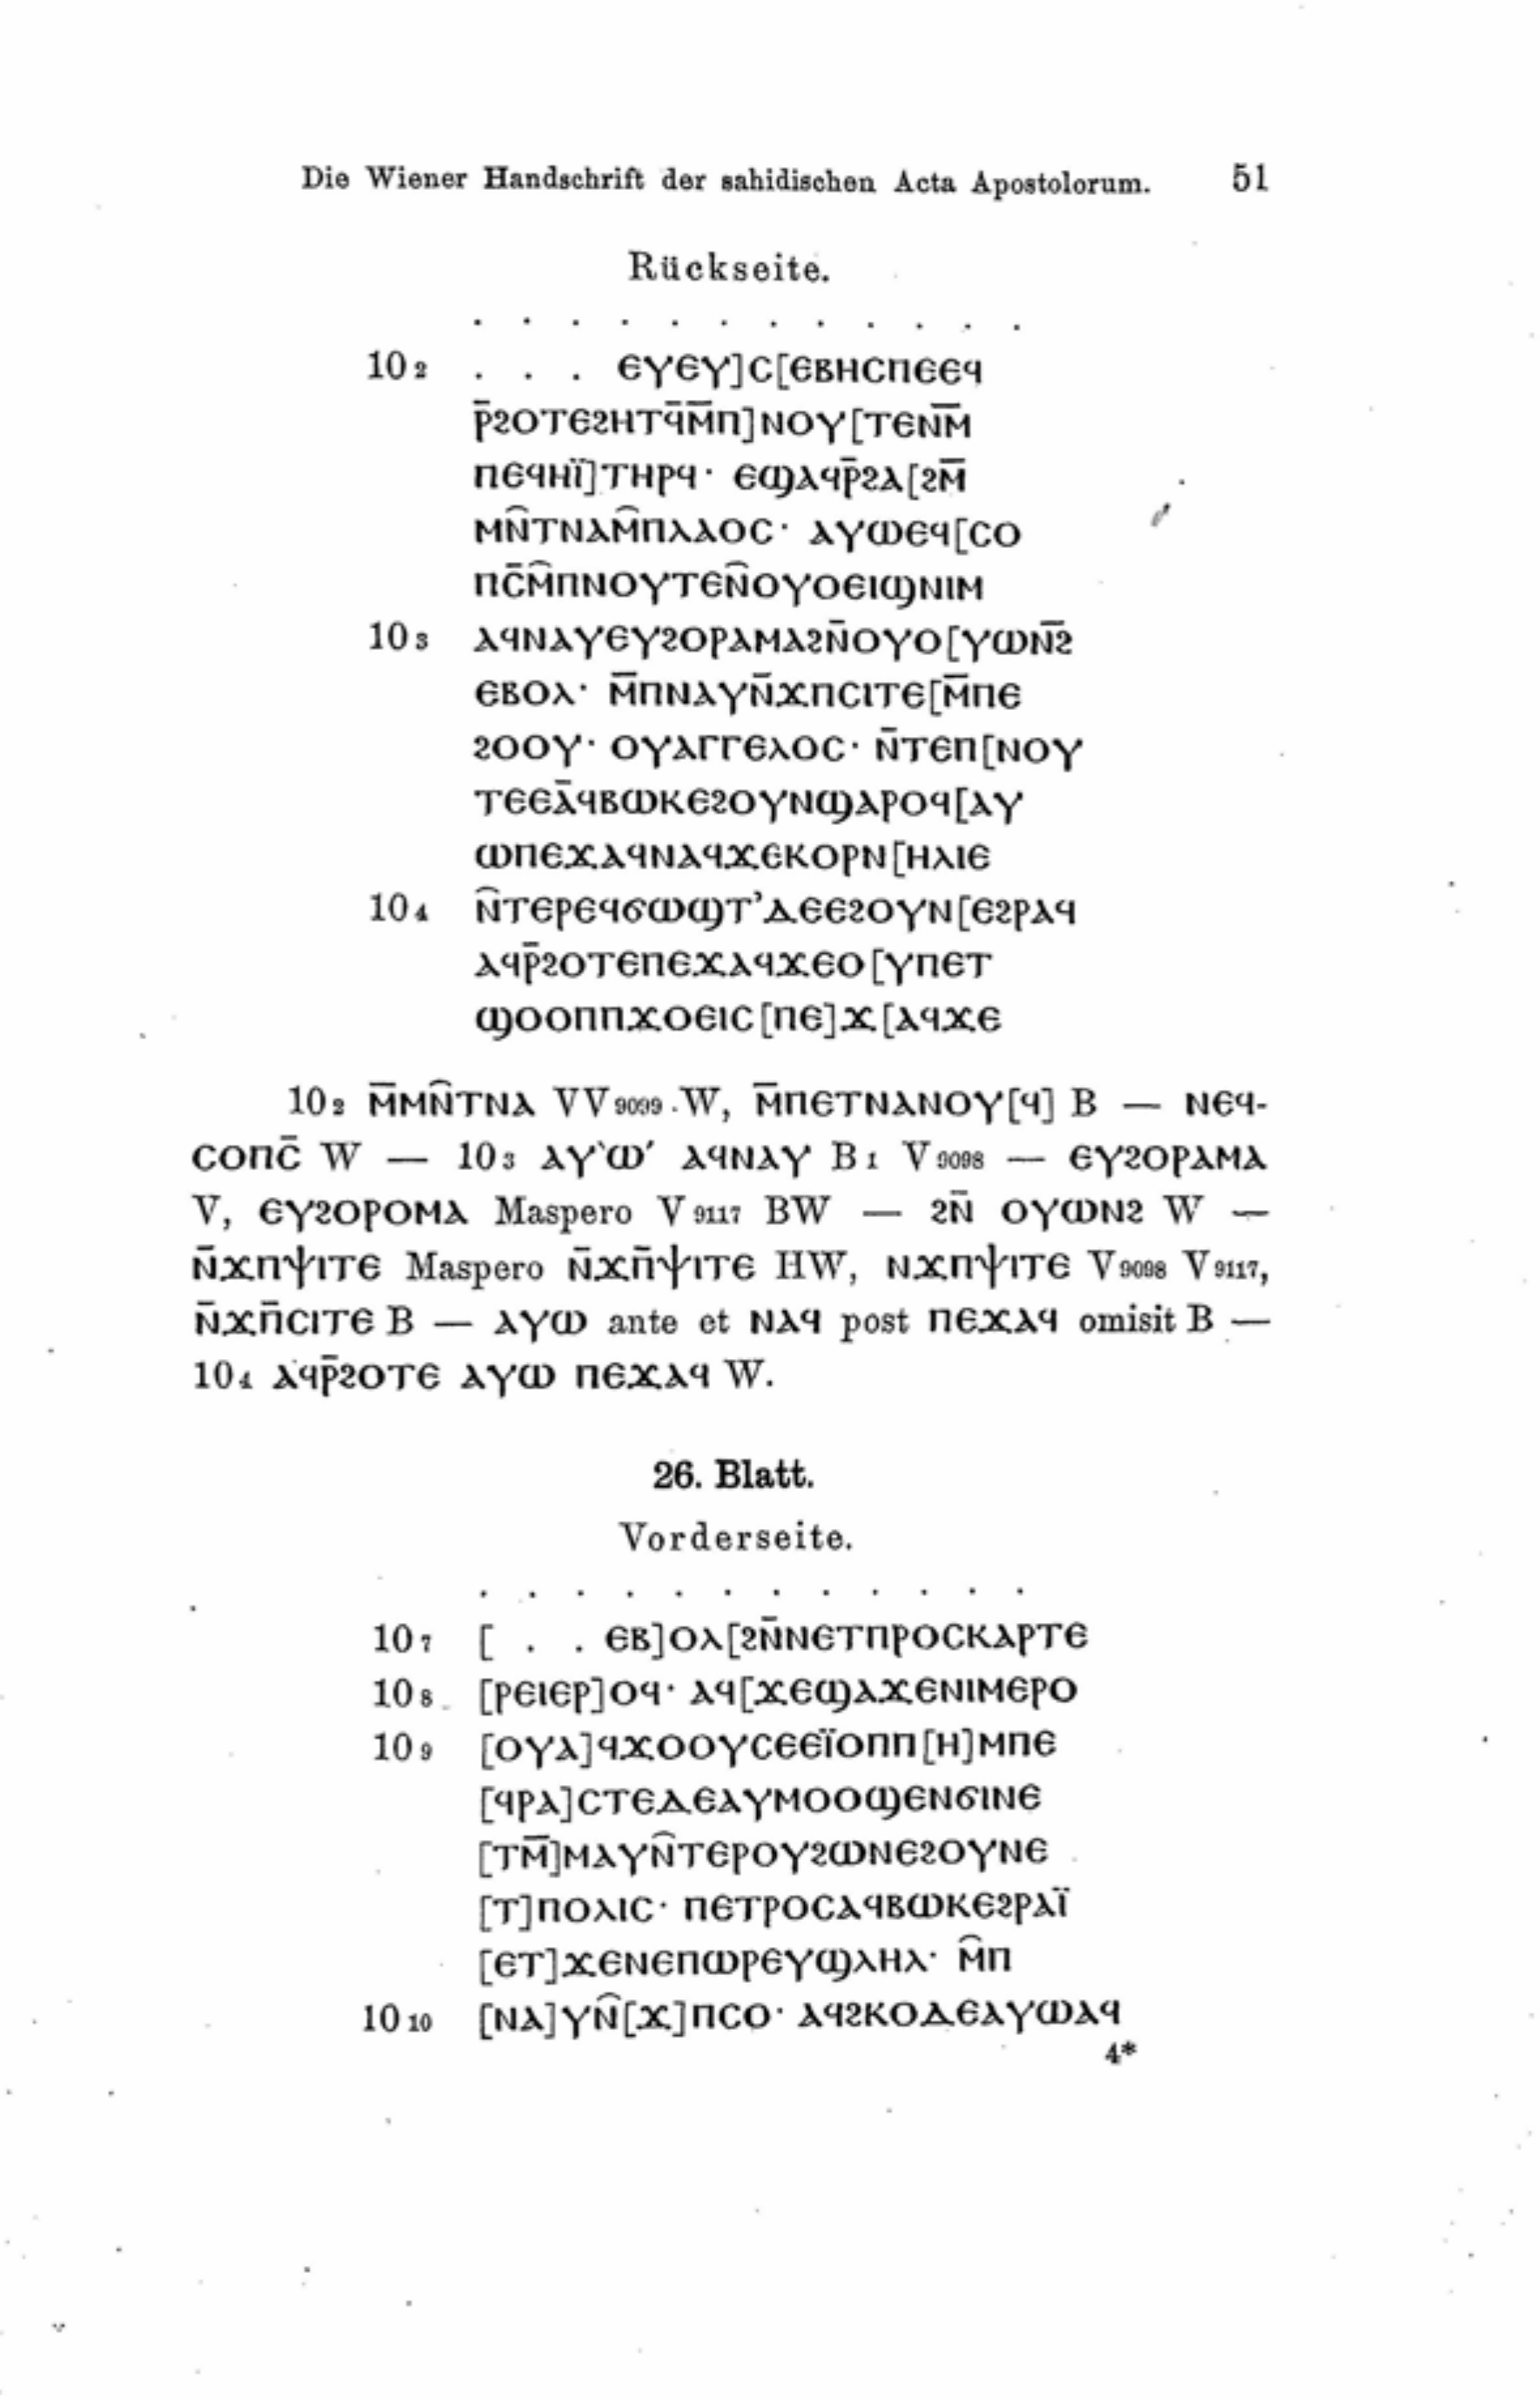 Die Wiener Handschrift der sahidischen Acta Apostolorum. 51
Rückseite.
. . . . . . . . . . . .
10 2 . . . ⲉⲩⲉⲩ]ⲥ[ⲉⲃⲏⲥⲡⲉⲉϥ
ⲣ̄ϩⲟⲧⲉϩⲏⲧϥ̄ⲙ̄ⲡ]ⲛⲟⲩ[ⲧⲉⲛⲙ̄
ⲡⲉϥⲏⲓ̈]ⲧⲏⲣϥ· ⲉϣⲁϥⲣ̄ϩⲁ[ϩⲙ̄
ⲙⲛ̑ⲧⲛⲁⲙ̑ⲡⲗⲁⲟⲥ· ⲁⲩⲱⲉϥ[ⲥⲟ
ⲡⲥ̄ⲙ̑ⲡⲛⲟⲩⲧⲉⲛ̑ⲟⲩⲟⲉⲓϣⲛⲓⲙ
10 3 ⲁϥⲛⲁⲩⲉⲩϩⲟⲣⲁⲙⲁϩⲛ̄ⲟⲩⲟ[ⲩⲱⲛ̄ϩ
ⲉⲃⲟⲗ· ⲙ̄ⲡⲛⲁⲩⲛ̄ϫⲡⲥⲓⲧⲉ[ⲙ̄ⲡⲉ
ϩⲟⲟⲩ· ⲟⲩⲁⲅⲅⲉⲗⲟⲥ· ⲛ̄ⲧⲉⲡ[ⲛⲟⲩ
ⲧⲉⲉⲁ̄ϥⲃⲱⲕⲉϩⲟⲩⲛϣⲁⲣⲟϥ[ⲁⲩ
ⲱⲡⲉϫⲁϥⲛⲁϥϫⲉⲕⲟⲣⲛ[ⲏⲗⲓⲉ
10 4 ⲛ̑ⲧⲉⲣⲉϥϭⲱϣⲧ’ⲇⲉⲉϩⲟⲩⲛ[ⲉϩⲣⲁϥ
ⲁϥⲣ̄ϩⲟⲧⲉⲡⲉϫⲁϥϫⲉⲟ[ⲩⲡⲉⲧ
ϣⲟⲟⲡⲡϫⲟⲉⲓⲥ[ⲡⲉ]ϫ[ⲁϥϫⲉ
10 2 ⲙ̄ⲙⲛ̑ⲧⲛⲁ VV 9099 . W, ⲙ̄ⲡⲉⲧⲛⲁⲛⲟⲩ[ϥ] B — ⲛⲉϥ-
ⲥⲟⲡⲥ̄ W — 10 3 ⲁⲩ‵ⲱ′ ⲁϥⲛⲁⲩ B 1 V 9098 — ⲉⲩϩⲟⲣⲁⲙⲁ
V, ⲉⲩϩⲟⲣⲟⲙⲁ Maspero V 9117 BW — ϩⲛ̄ ⲟⲩⲱⲛϩ W —
ⲛ̄ϫⲡⲯⲓⲧⲉ Maspero ⲛ̄ϫⲡ̄ⲯⲓⲧⲉ HW, ⲛϫⲡⲯⲓⲧⲉ V 9098 V 9117,
ⲛ̄ϫⲡ̄ⲥⲓⲧⲉ B — ⲁⲩⲱ ante et ⲛⲁϥ post ⲡⲉϫⲁϥ omisit B —
10 4 ⲁϥⲣ̄ϩⲟⲧⲉ ⲁⲩⲱ ⲡⲉϫⲁϥ W.
26. Blatt.
Vorderseite.
. . . . . . . . . . . .
10 7 [ . . ⲉⲃ]ⲟⲗ[ϩⲛ̄ⲛⲉⲧⲡⲣⲟⲥⲕⲁⲣⲧⲉ
10 8 [ⲣⲉⲓⲉⲣ]ⲟϥ· ⲁϥ[ϫⲉϣⲁϫⲉⲛⲓⲙⲉⲣⲟ
10 9 [ⲟⲩⲁ]ϥϫⲟⲟⲩⲥⲉⲉⲓ̈ⲟⲡⲡ[ⲏ]ⲙⲡⲉ
[ϥⲣⲁ]ⲥⲧⲉⲇⲉⲁⲩⲙⲟⲟϣⲉⲛϭⲓⲛⲉ
[ⲧⲙ̄]ⲙⲁⲩⲛ̑ⲧⲉⲣⲟⲩϩⲱⲛⲉϩⲟⲩⲛⲉ
[ⲧ]ⲡⲟⲗⲓⲥ· ⲡⲉⲧⲣⲟⲥⲁϥⲃⲱⲕⲉϩⲣⲁⲓ̈
[ⲉⲧ]ϫⲉⲛⲉⲡⲱⲣⲉⲩϣⲗⲏⲗ· ⲙ̑ⲡ
10 10 [ⲛⲁ]ⲩⲛ̑[ϫ]ⲡⲥⲟ· ⲁϥϩⲕⲟⲇⲉⲁⲩⲱⲁϥ
4*